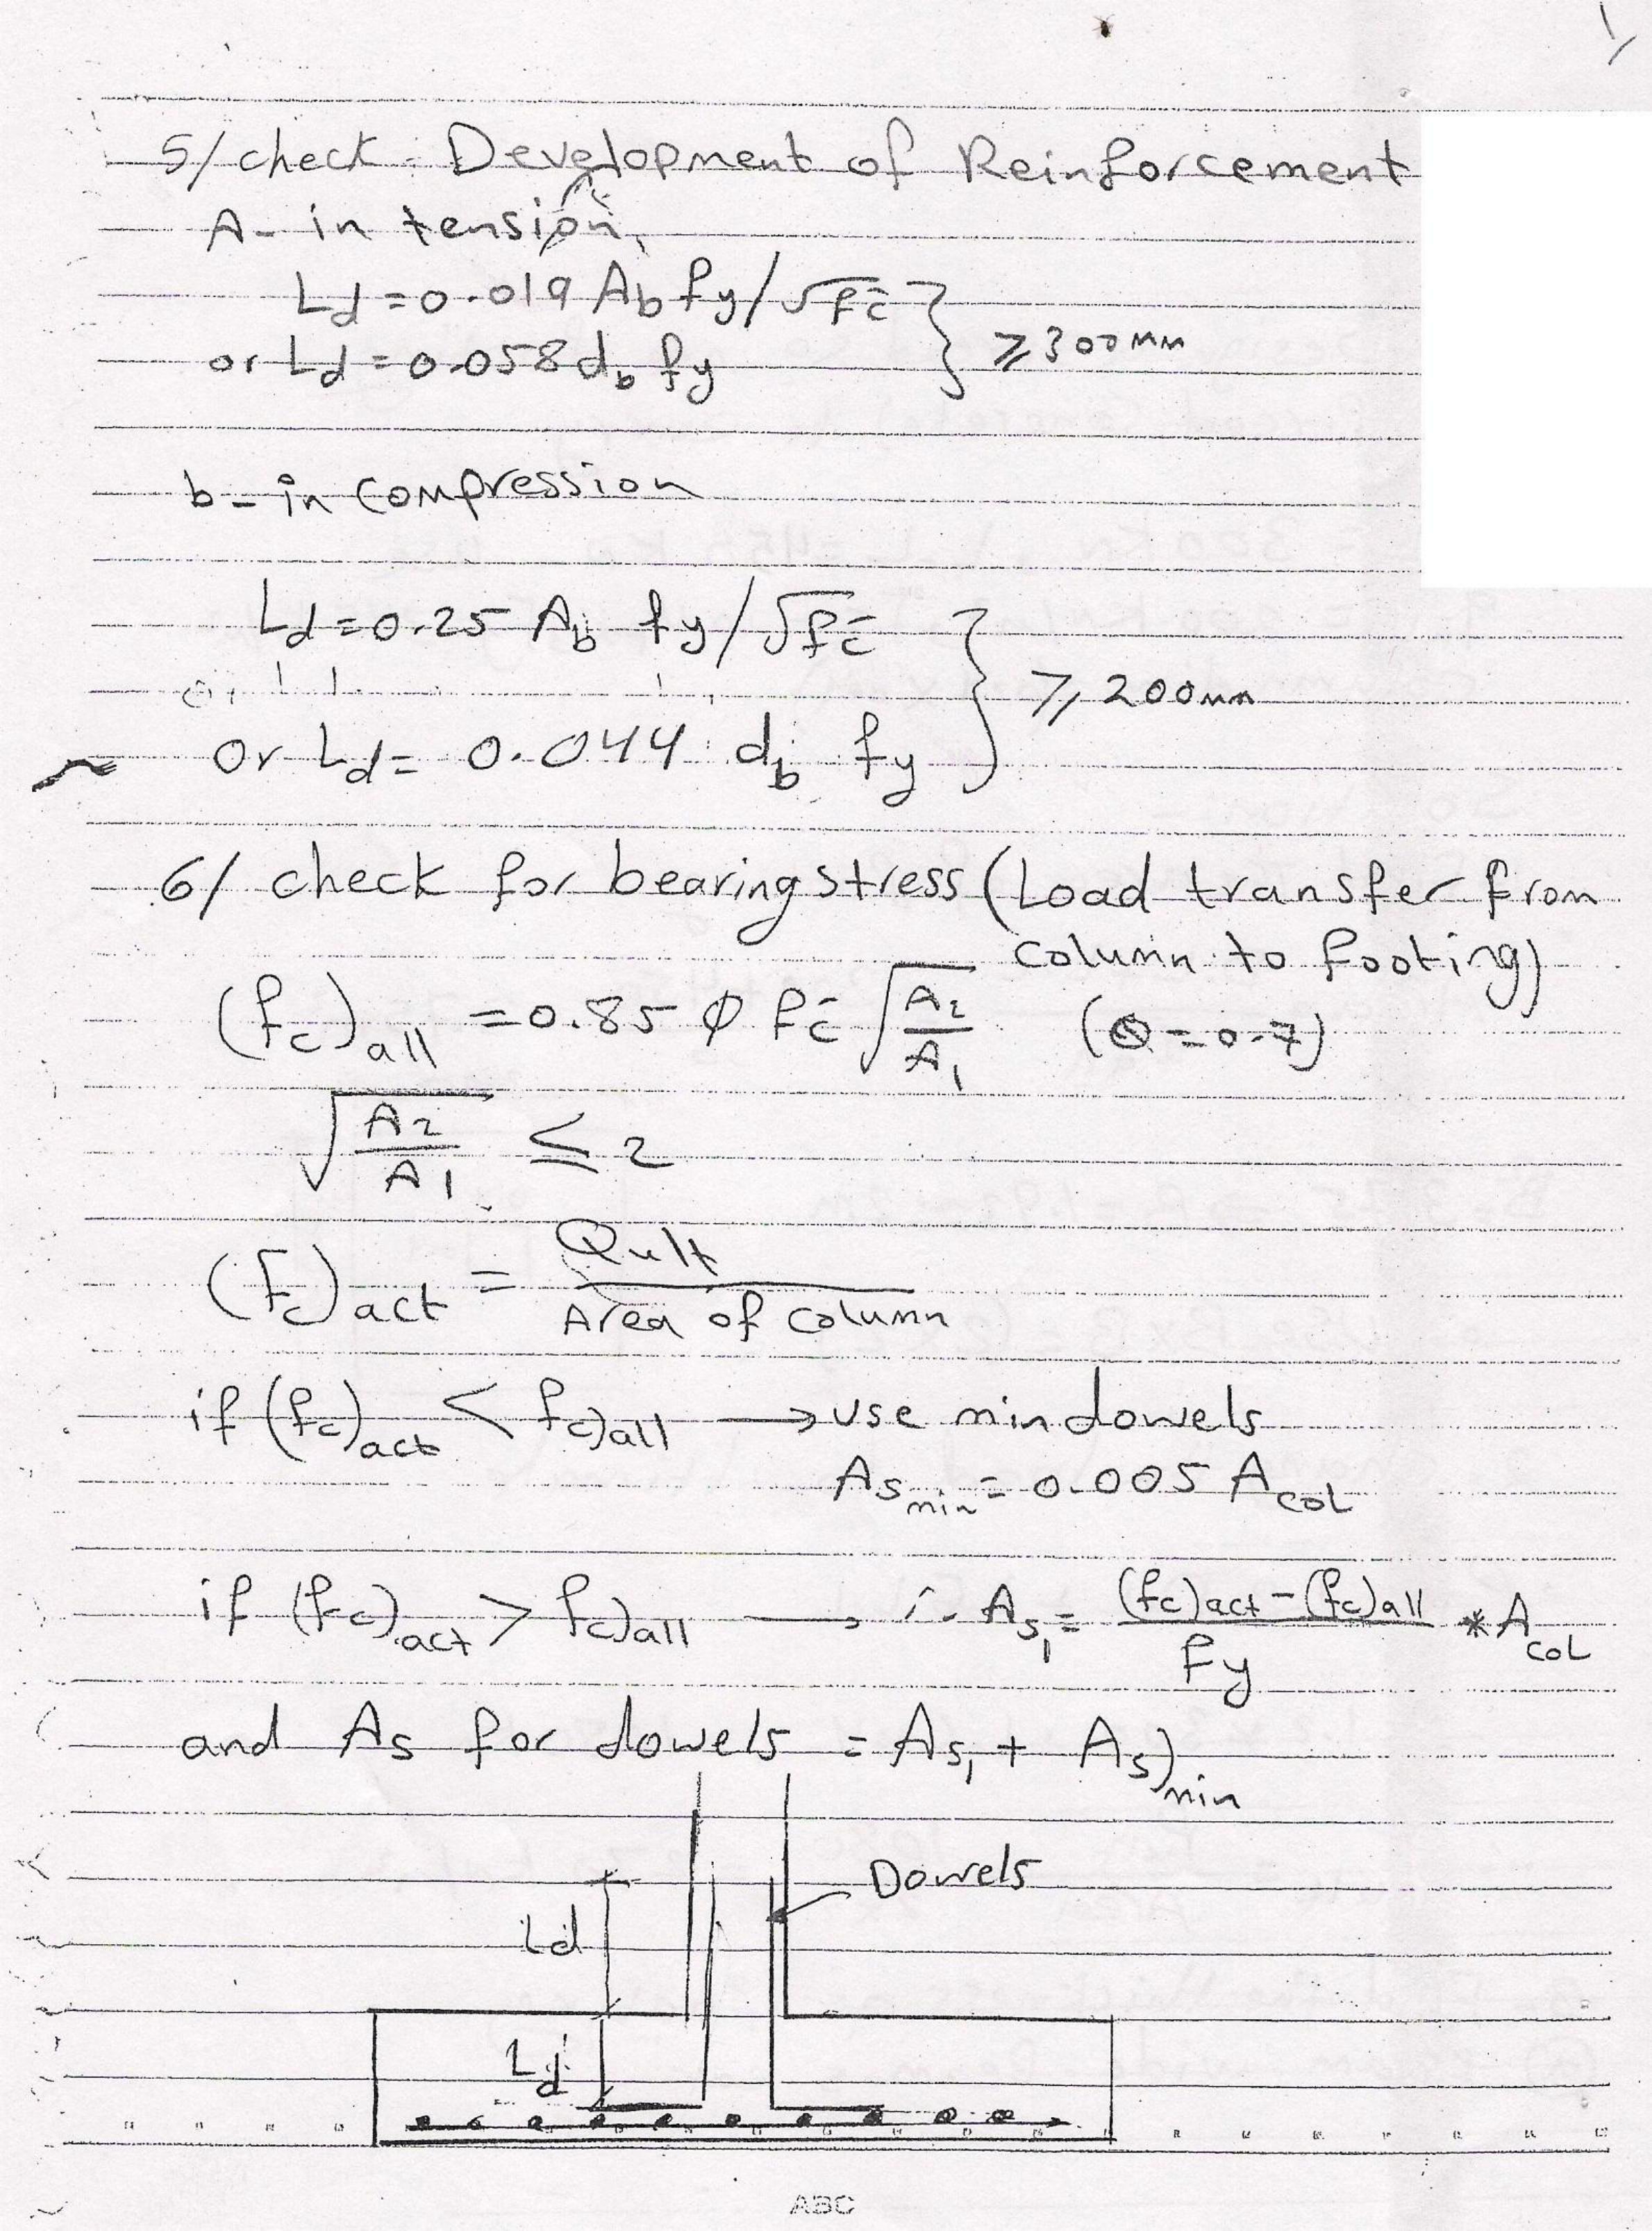 5/ check: Development of Reinforcement
A- in tension,
Ld = 0.019 Ab fy/√fc̄
or Ld = 0.058 db fy } ≥ 300 mm
b- in compression
Ld = 0.25 Ab fy/√fc̄
or Ld = 0.044 db fy } ≥ 200 mm
6/ check for bearing stress (Load transfer from
column to footing)
(fc)all = 0.85 Ø fc̄ √(A2/A1) (Ø = 0.7)
√(A2/A1) ≤ 2
(fc)act = Qult / Area of column
if (fc)act < fc)all → use min dowels
As min = 0.005 A col
if (fc)act > fc)all → ∴ As1 = ((fc)act - (fc)all / fy) * A col
and As for dowels = As1 + As)min
Dowels
Ld
Ld
ABC